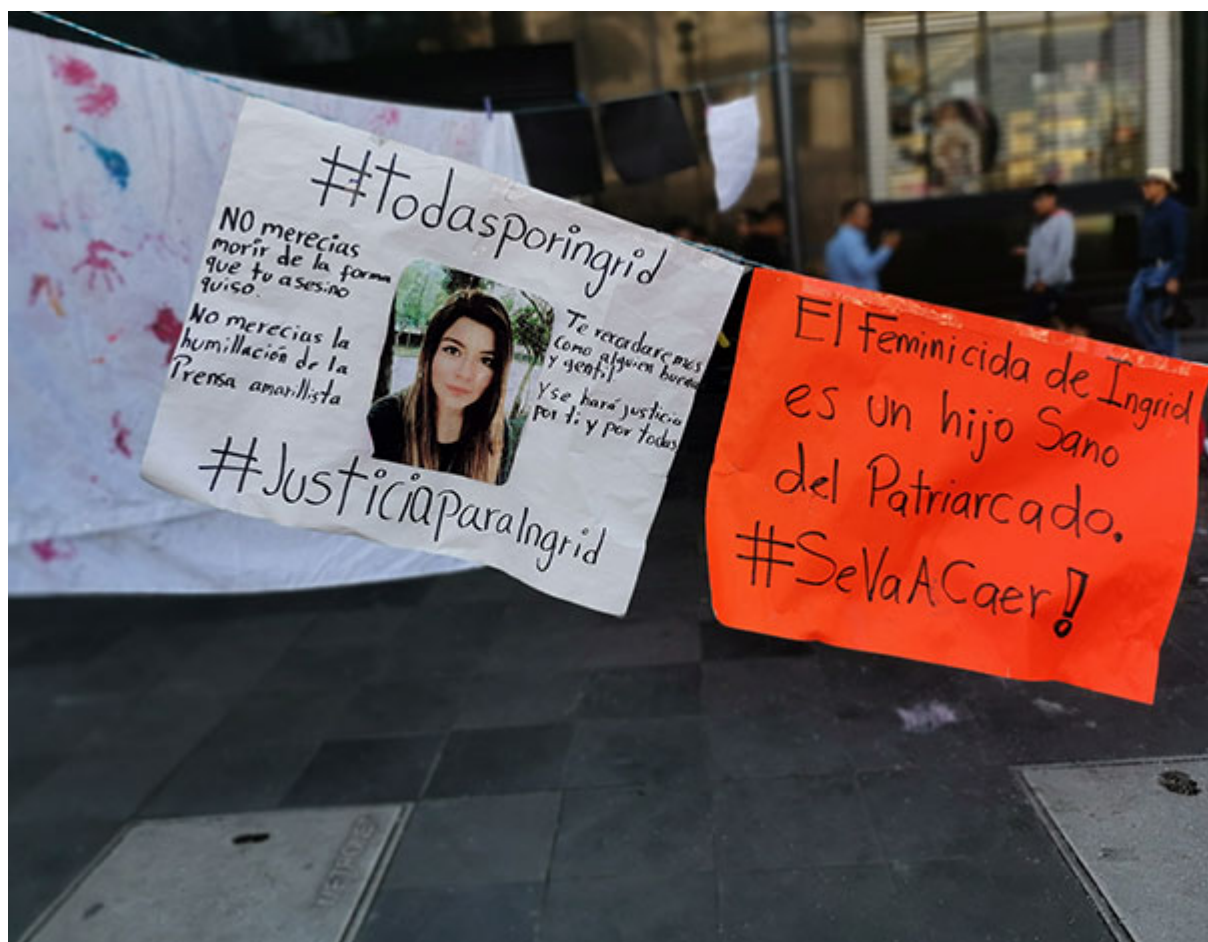 #todasporingrid
NO merecias
morir de la forma
que tu asesino
quiso.
No merecias la
humillación de la
Prensa amarillista
Te recordaremos
como alguien buena
y gentil
Y se hará justicia
por ti y por todas
#JusticiaparaIngrid
El Feminicida de Ingrid
es un hijo Sano
del Patriarcado.
#SeVaACaer!